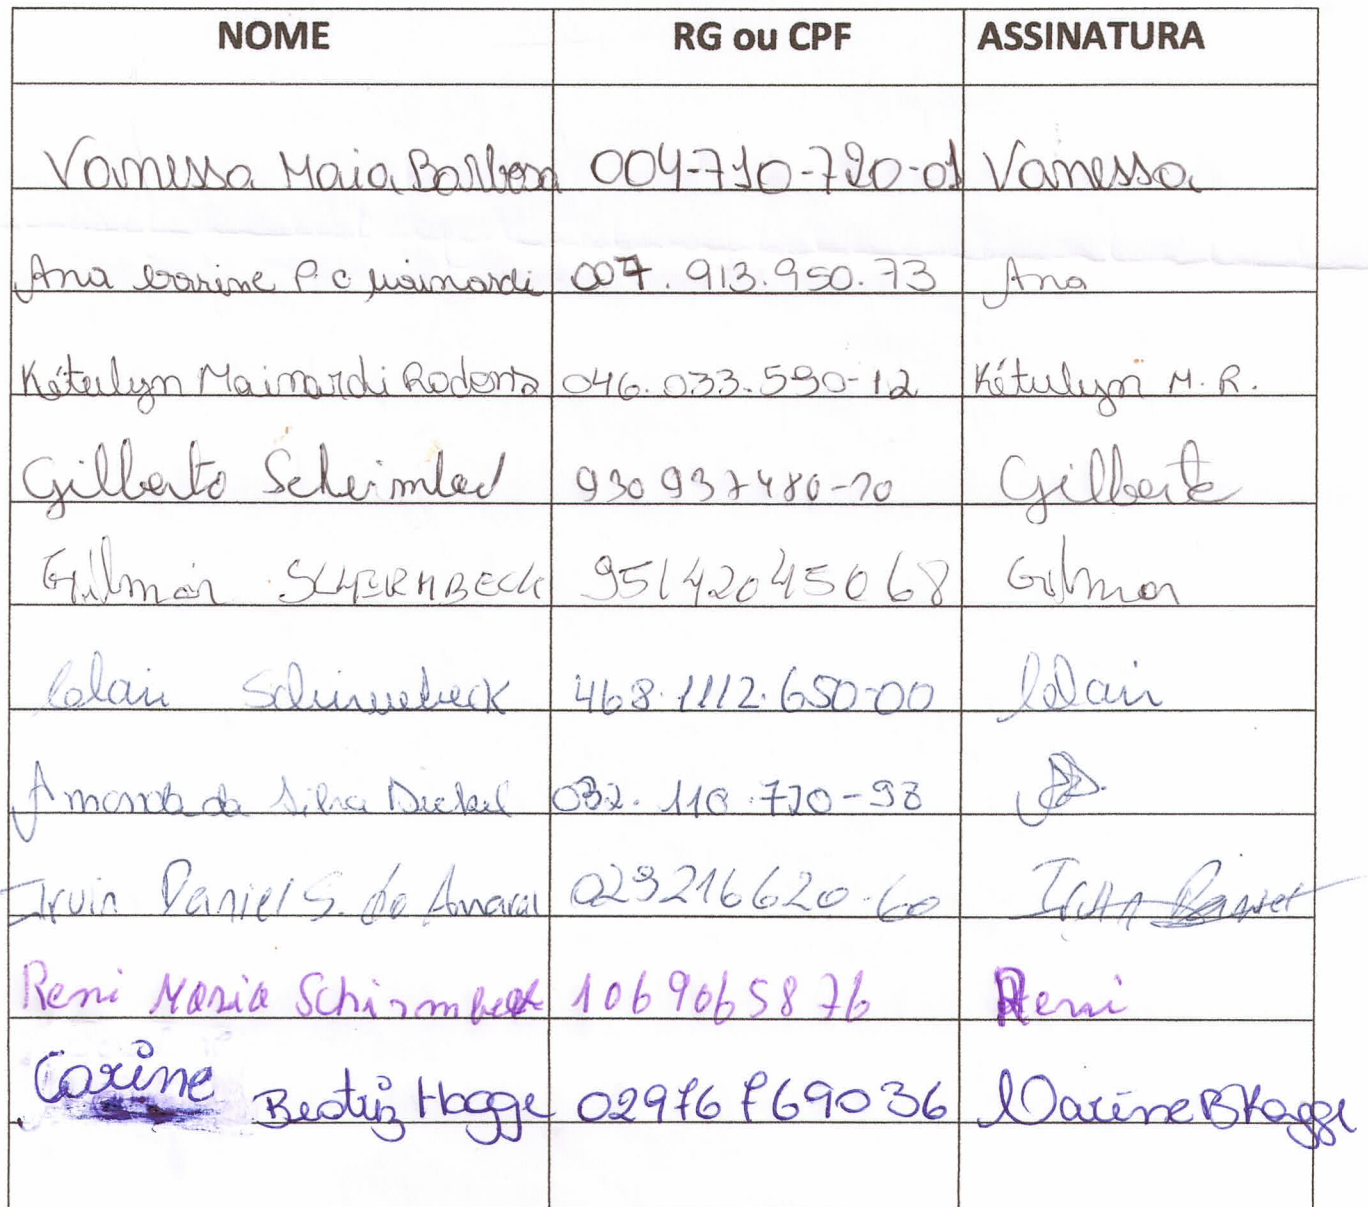 NOME RG ou CPF ASSINATURA
Vanessa Maia Barbosa 004-710-720-01 Vanessa
Ana Carine P c Mainardi 007.913.950.73 Ana
Kétulyn Mainardi 046.033.590-12 Kétulyn M. R.
Gilberto 930937480-20 Gilberto
Gilmar SCHIRMBECK 95142045068 Gilmar
Schirmebeck 468.1112.650-00
Amanda da Silva 032.110.720-98
Irvin Daniel S. do Amaral 029216620-60
Reni Maria Schirmbeck 1069065876 Reni
Carine Beatriz Hagge 02976769036 Carine B Hagge